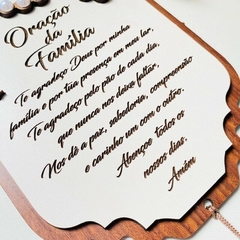 Oração
da
Família
Te agradeço Deus por minha
família e por tua presença em meu lar.
Te agradeço pelo pão de cada dia,
que nunca nos deixe faltar,
Nos dê a paz, sabedoria, compreensão
e carinho um com o outro.
Abençoe todos os
nossos dias.
Amém